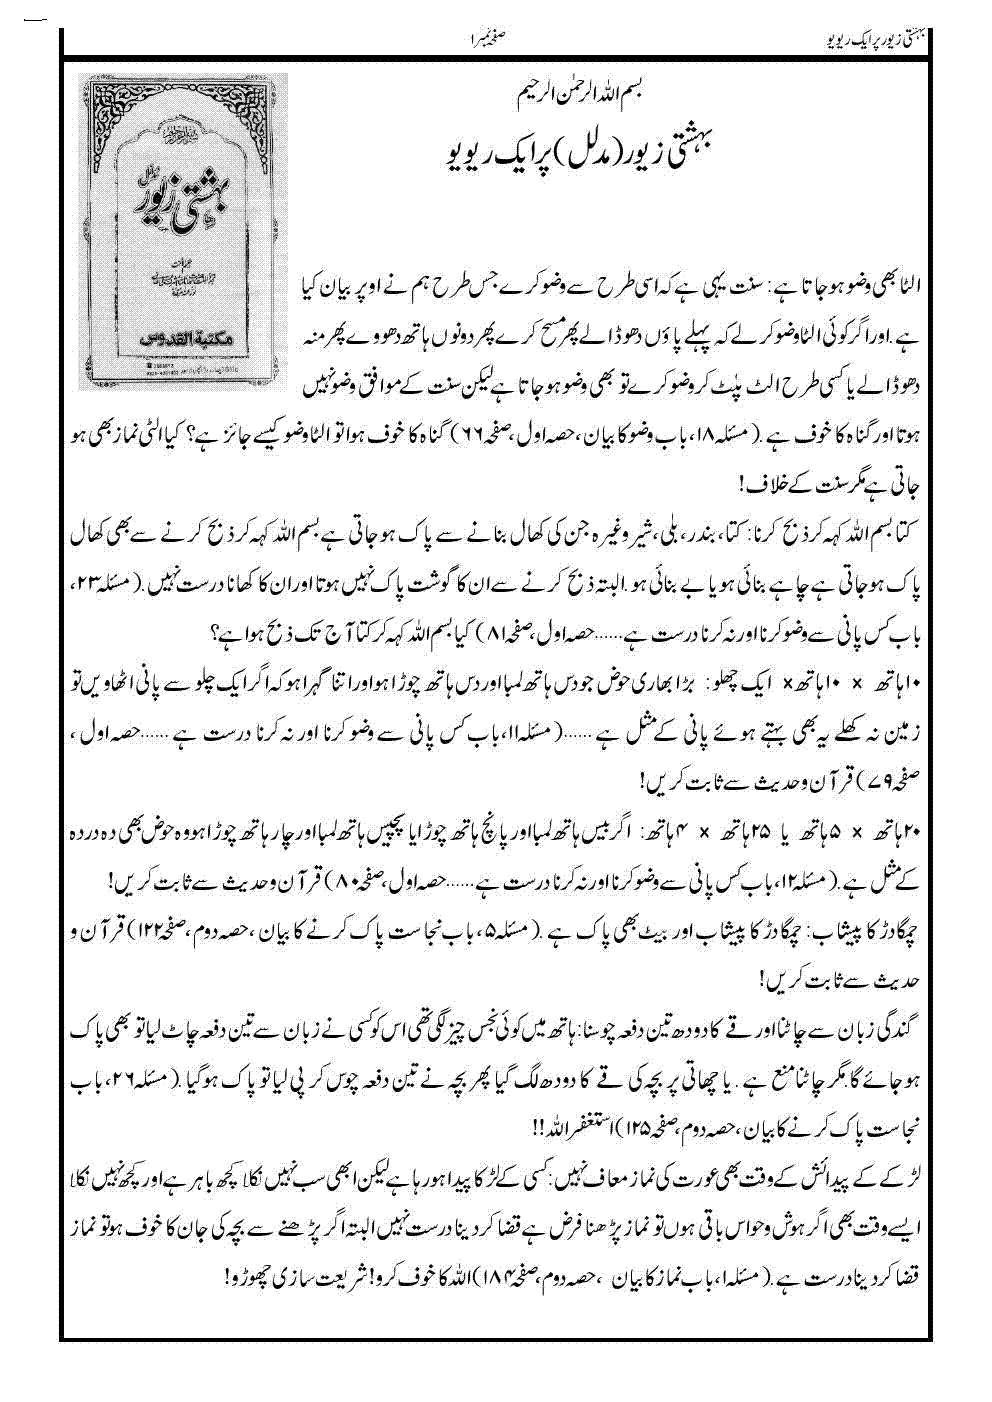 بہشتی زیور پر ایک ریویو
صفحہ نمبر ۱
بسم اللہ الرحمٰن الرحیم
بہشتی زیور (مدلل) پر ایک ریویو
بہشتی زیور
مدلل
مکتبۃ القدوس
الٹا بھی وضو ہو جاتا ہے: سنت یہی ہے کہ اسی طرح سے وضو کرے جس طرح ہم نے اوپر بیان کیا
ہے۔ اور اگر کوئی الٹا وضو کر لے کہ پہلے پاؤں دھو ڈالے پھر مسح کرے پھر دونوں ہاتھ دھووے پھر منہ
دھو ڈالے یا کسی طرح الٹ پلٹ کر وضو کرے تو بھی وضو ہو جاتا ہے لیکن سنت کے موافق وضو نہیں
ہوتا اور گناہ کا خوف ہے۔ (مسئلہ ۱۸، باب وضو کا بیان، حصہ اول، صفحہ ۶۶) گناہ کا خوف ہوا تو الٹا وضو کیسے جائز ہے؟ کیا الٹی نماز بھی ہو
جاتی ہے مگر سنت کے خلاف!
کتا بسم اللہ کہہ کر ذبح کرنا: کتا، بندر، بلی، شیر وغیرہ جن کی کھال بنانے سے پاک ہو جاتی ہے بسم اللہ کہہ کر ذبح کرنے سے بھی کھال
پاک ہو جاتی ہے چاہے بنائی ہو یا بے بنائی ہو۔ البتہ ذبح کرنے سے ان کا گوشت پاک نہیں ہوتا اور ان کا کھانا درست نہیں۔ (مسئلہ ۲۳،
باب کس پانی سے وضو کرنا اور نہ کرنا درست ہے......حصہ اول، صفحہ ۸۱) کیا بسم اللہ کہہ کر کتا آج تک ذبح ہوا ہے؟
۱۰ہاتھ × ۱۰ہاتھ× ایک چھلو: بڑا بھاری حوض جو دس ہاتھ لمبا اور دس ہاتھ چوڑا ہو اور اتنا گہرا ہو کہ اگر ایک چلو سے پانی اٹھاویں تو
زمین نہ کھلے یہ بھی بہتے ہوئے پانی کے مثل ہے......(مسئلہ ۱۱، باب کس پانی سے وضو کرنا اور نہ کرنا درست ہے......حصہ اول،
صفحہ ۷۹) قرآن و حدیث سے ثابت کریں!
۲۰ہاتھ × ۵ہاتھ یا ۲۵ہاتھ × ۴ہاتھ: اگر بیس ہاتھ لمبا اور پانچ ہاتھ چوڑا یا پچیس ہاتھ لمبا اور چار ہاتھ چوڑا ہو وہ حوض بھی دہ دردہ
کے مثل ہے۔ (مسئلہ ۱۲، باب کس پانی سے وضو کرنا اور نہ کرنا درست ہے......حصہ اول، صفحہ ۸۰) قرآن و حدیث سے ثابت کریں!
چمگادڑ کا پیشاب: چمگادڑ کا پیشاب اور بیٹ بھی پاک ہے۔ (مسئلہ ۵، باب نجاست پاک کرنے کا بیان، حصہ دوم، صفحہ ۱۲۲) قرآن و
حدیث سے ثابت کریں!
گندگی زبان سے چاٹنا اور قے کا دودھ تین دفعہ چوسنا: ہاتھ میں کوئی نجس چیز لگی تھی اس کو کسی نے زبان سے تین دفعہ چاٹ لیا تو بھی پاک
ہو جائے گا۔ مگر چاٹنا منع ہے۔ یا چھاتی پر بچہ کی قے کا دودھ لگ گیا پھر بچہ نے تین دفعہ چوس کر پی لیا تو پاک ہو گیا۔ (مسئلہ ۲۶، باب
نجاست پاک کرنے کا بیان، حصہ دوم، صفحہ ۱۲۵) استغفر اللہ!!
لڑکے کے پیدائش کے وقت بھی عورت کی نماز معاف نہیں: کسی کے لڑکا پیدا ہو رہا ہے لیکن ابھی سب نہیں نکلا کچھ باہر ہے اور کچھ نہیں نکلا
ایسے وقت بھی اگر ہوش و حواس باقی ہوں تو نماز پڑھنا فرض ہے قضا کر دینا درست نہیں البتہ اگر پڑھنے سے بچہ کی جان کا خوف ہو تو نماز
قضا کر دینا درست ہے۔ (مسئلہ ۱، باب نماز کا بیان، حصہ دوم، صفحہ ۱۸۴) اللہ کا خوف کرو! شریعت سازی چھوڑو!